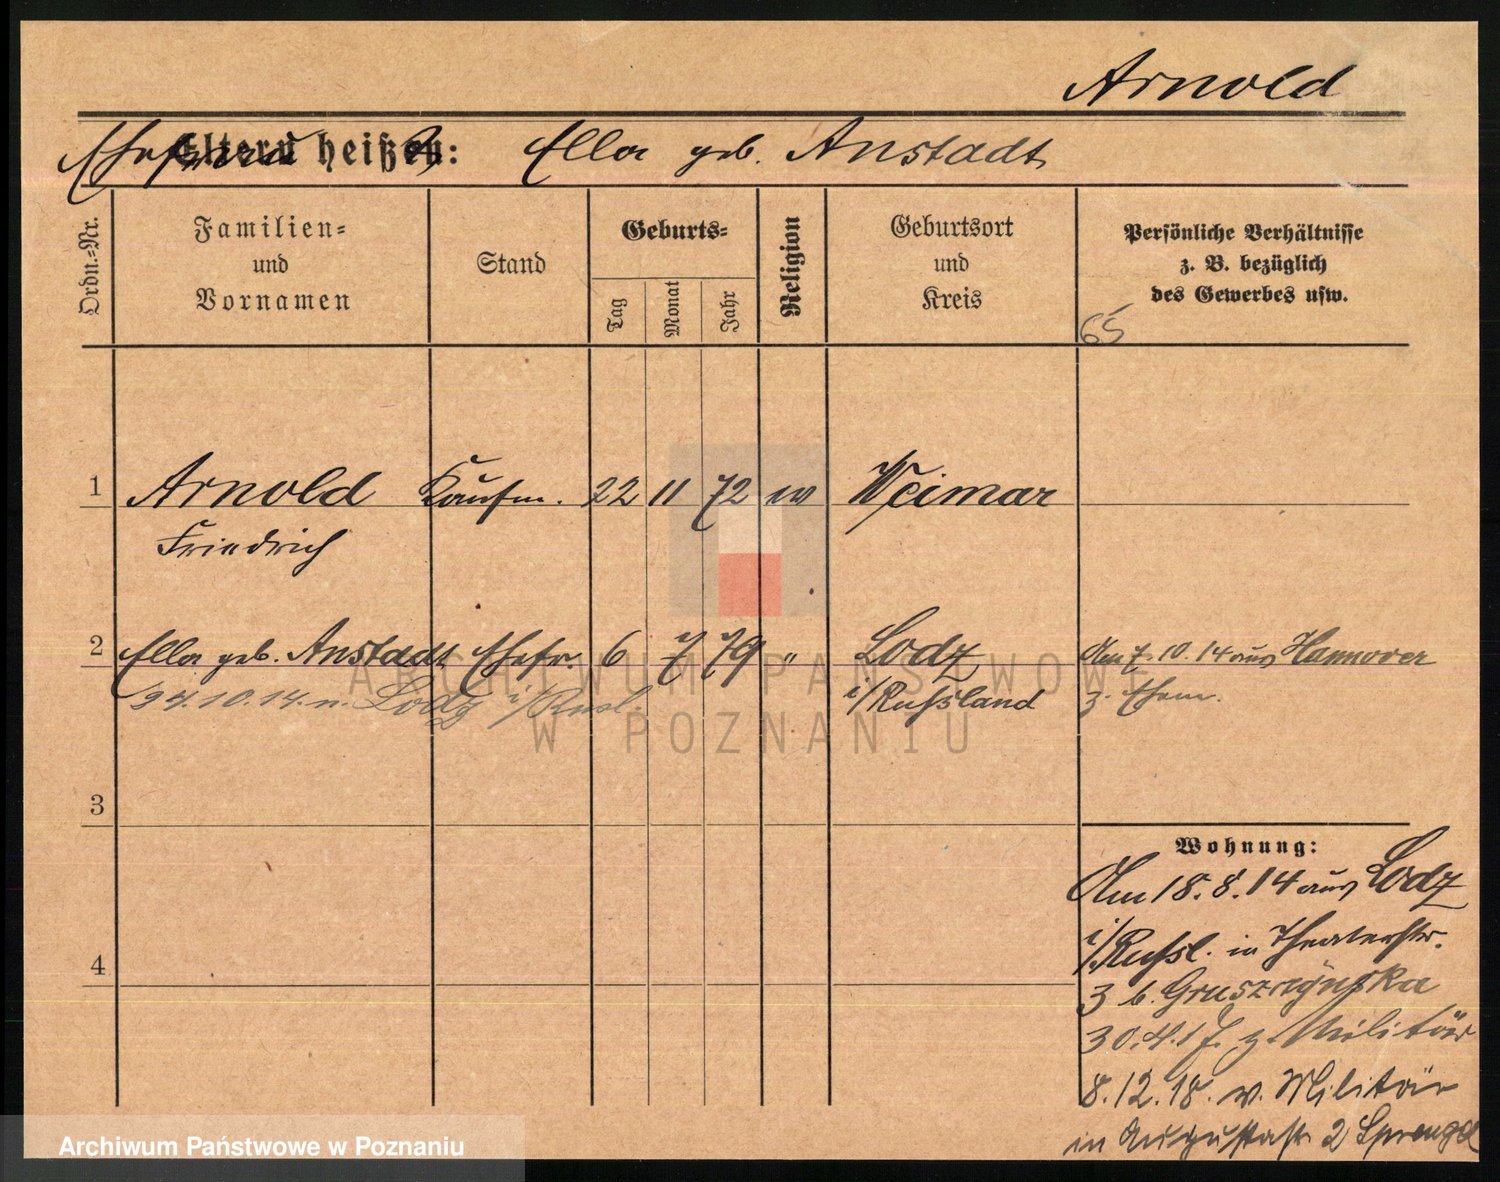 Arnold
Ehefrau Eltern heißen: Ella geb. Anstadt
Ordn.-Nr.
Familien-
und
Vornamen
Stand
Geburts-
Tag
Monat
Jahr
Religion
Geburtsort
und
Kreis
Persönliche Verhältnisse
z. B. bezüglich
des Gewerbes usw.
65
1 Arnold Kaufm. 22 11 72 ev Weimar
Friedrich
2 Ella geb. Anstadt Ehefr. 6 7 79 " Lodz
i/Russland
Am 7.10.14 aus Hannover
z. Ehem.
24.10.14 n. Lodz i/Russl.
3
4
Wohnung:
Am 18.8.14 aus Lodz
i/Russl. in Theaterstr.
3 b. Gruszczynska
30.4.17 z. Militär
8.12.18. v. Militär
in Augustastr 2 Sprengel
ARCHIWUM PAŃSTWOWE
W POZNANIU
Archiwum Państwowe w Poznaniu